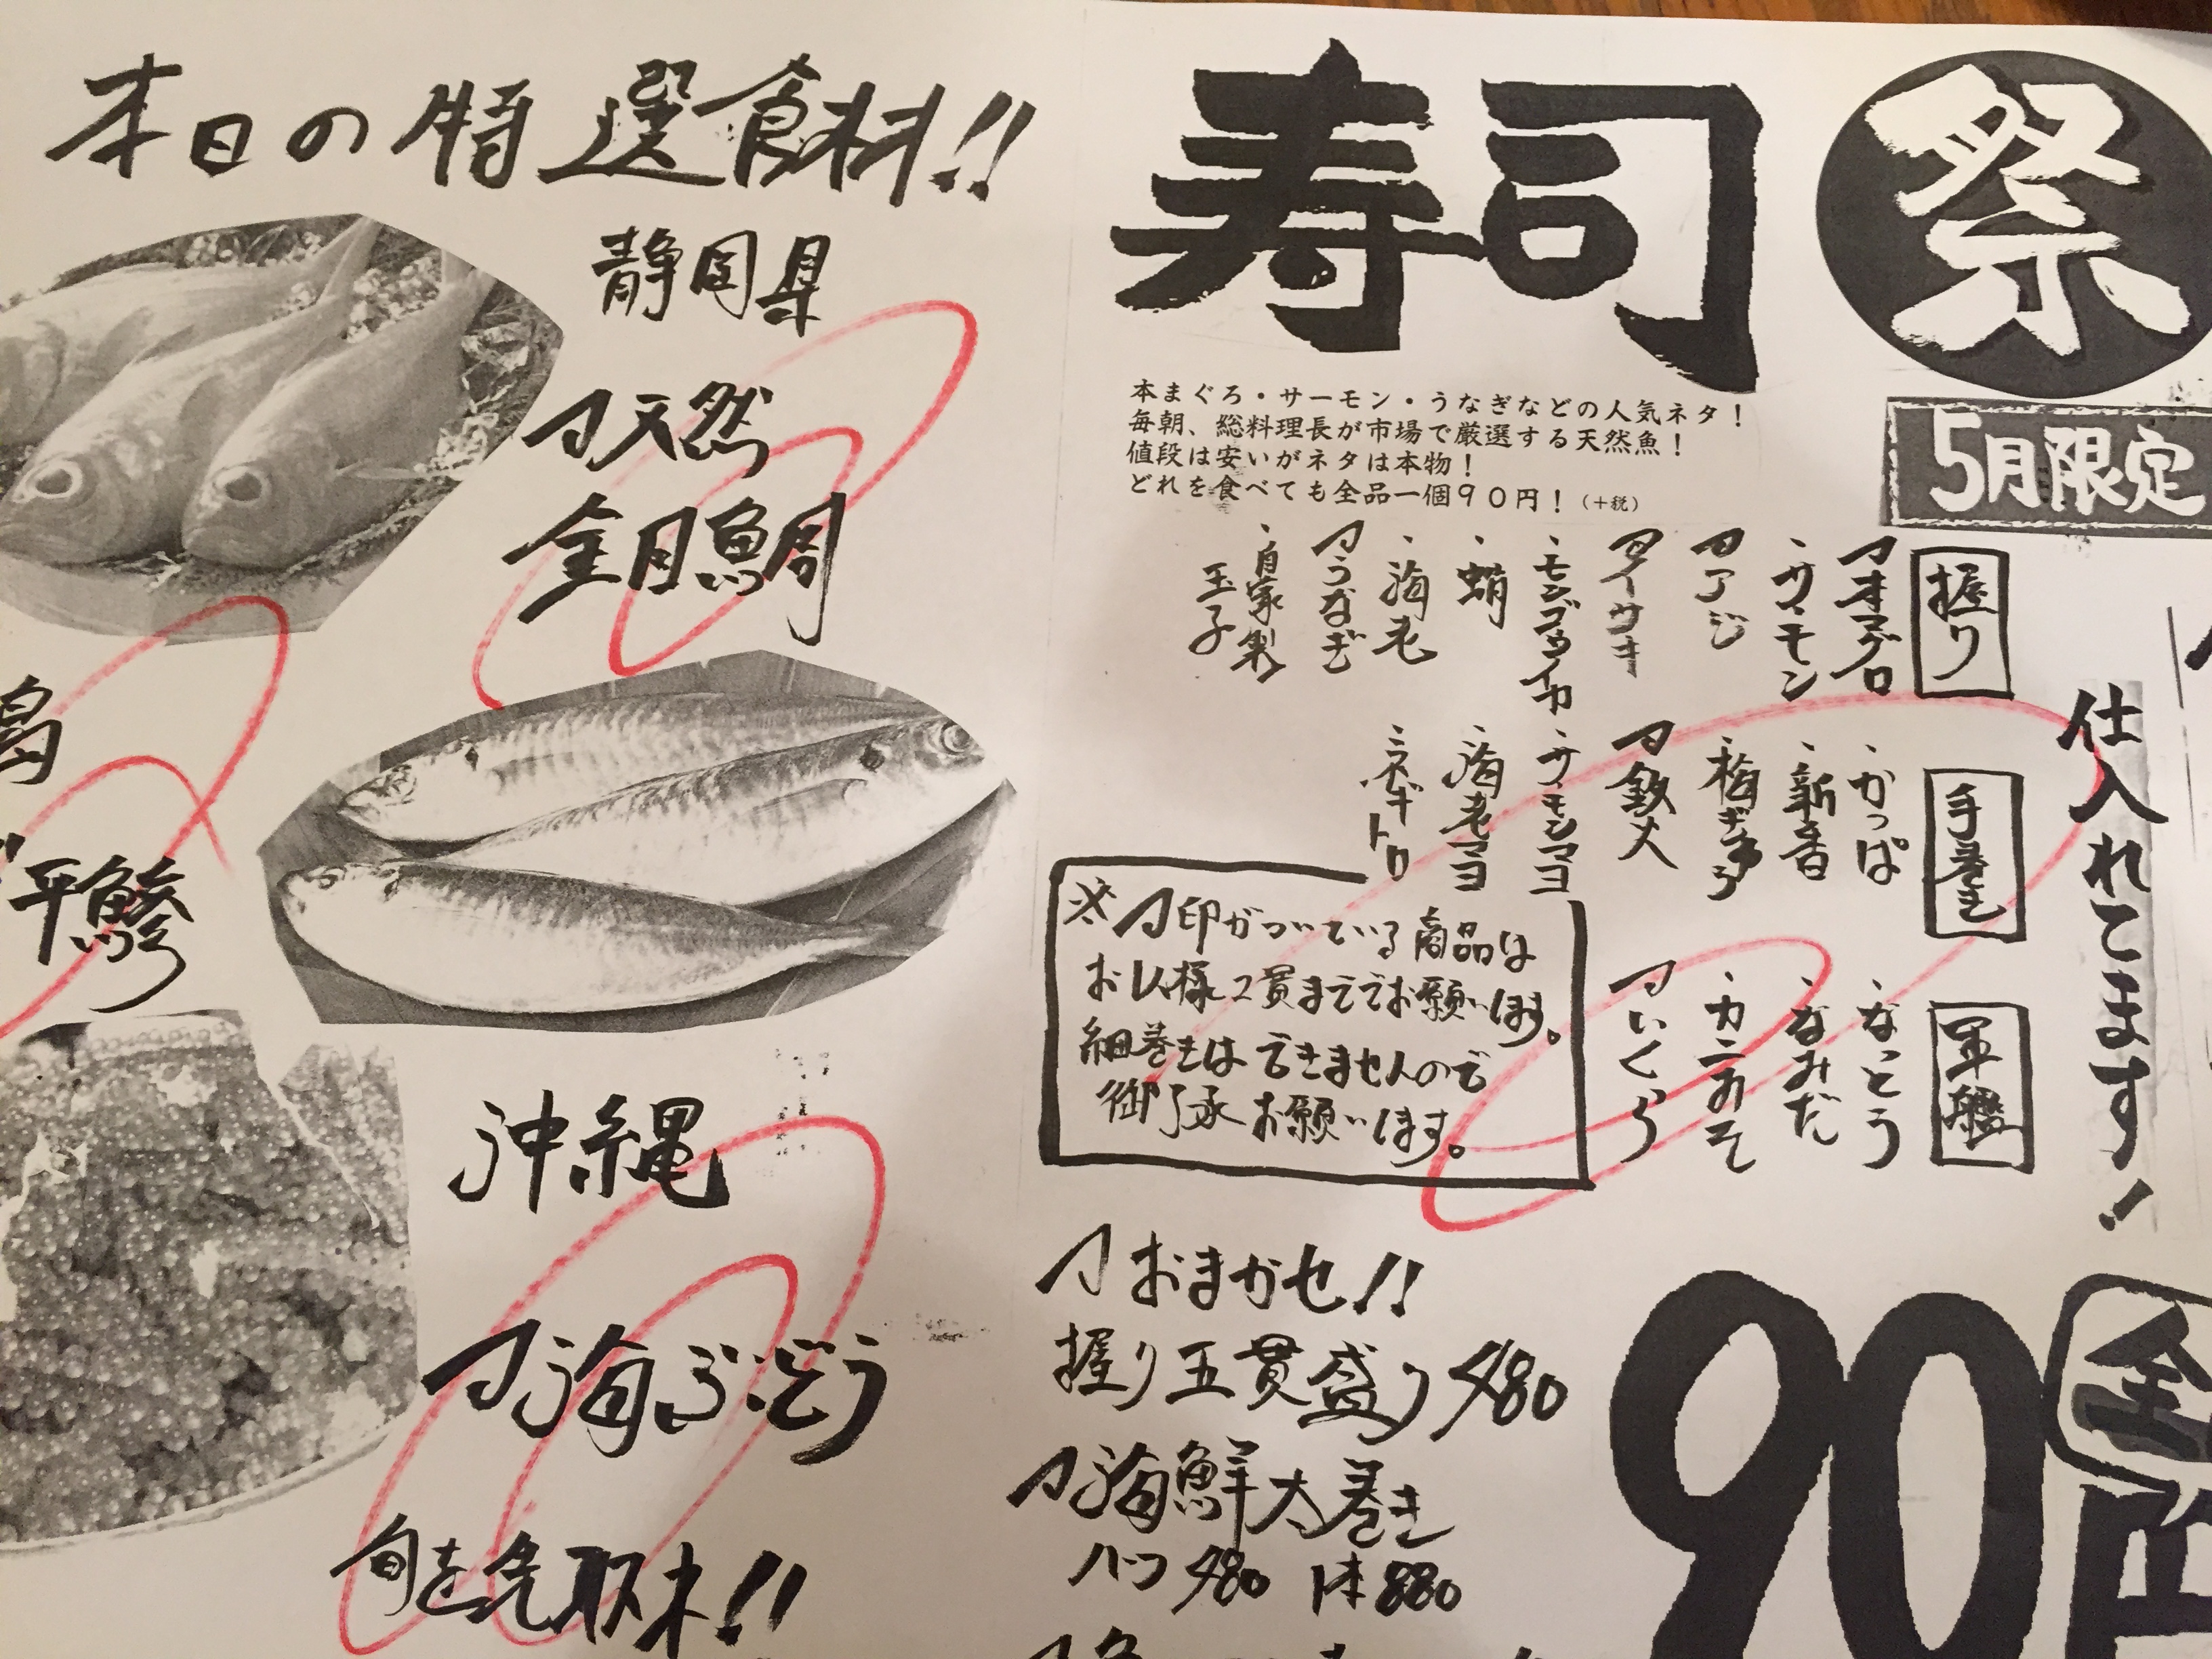 本日の特選食材!!
静岡県
マ天然
金目鯛
島
平鯵
沖縄
マ海ぶどう
旬を先取り!!
寿司祭
5月限定
本まぐろ・サーモン・うなぎなどの人気ネタ！
毎朝、総料理長が市場で厳選する天然魚！
値段は安いがネタは本物！
どれを食べても全品一個90円！（+税）
仕入れてます!
握り
マ本マグロ
・サーモン
マアジ
マイサキ
・モンゴウイカ
・蛸
・海老
マうなぎ
・自家製
玉子
手巻き
・かっぱ
・新香
・梅きゅう
マ鉄火
・サーモンマヨ
・海老マヨ
・ネギトロ
軍艦
・なっとう
・なみだ
・カニみそ
マいくら
※マ印がついている商品は
お1人様2貫まででお願いします。
細巻きはできませんので
御了承お願いします。
マおまかせ!!
握り五貫盛り480
マ海鮮太巻き
ハーフ480 1本880
90円
全